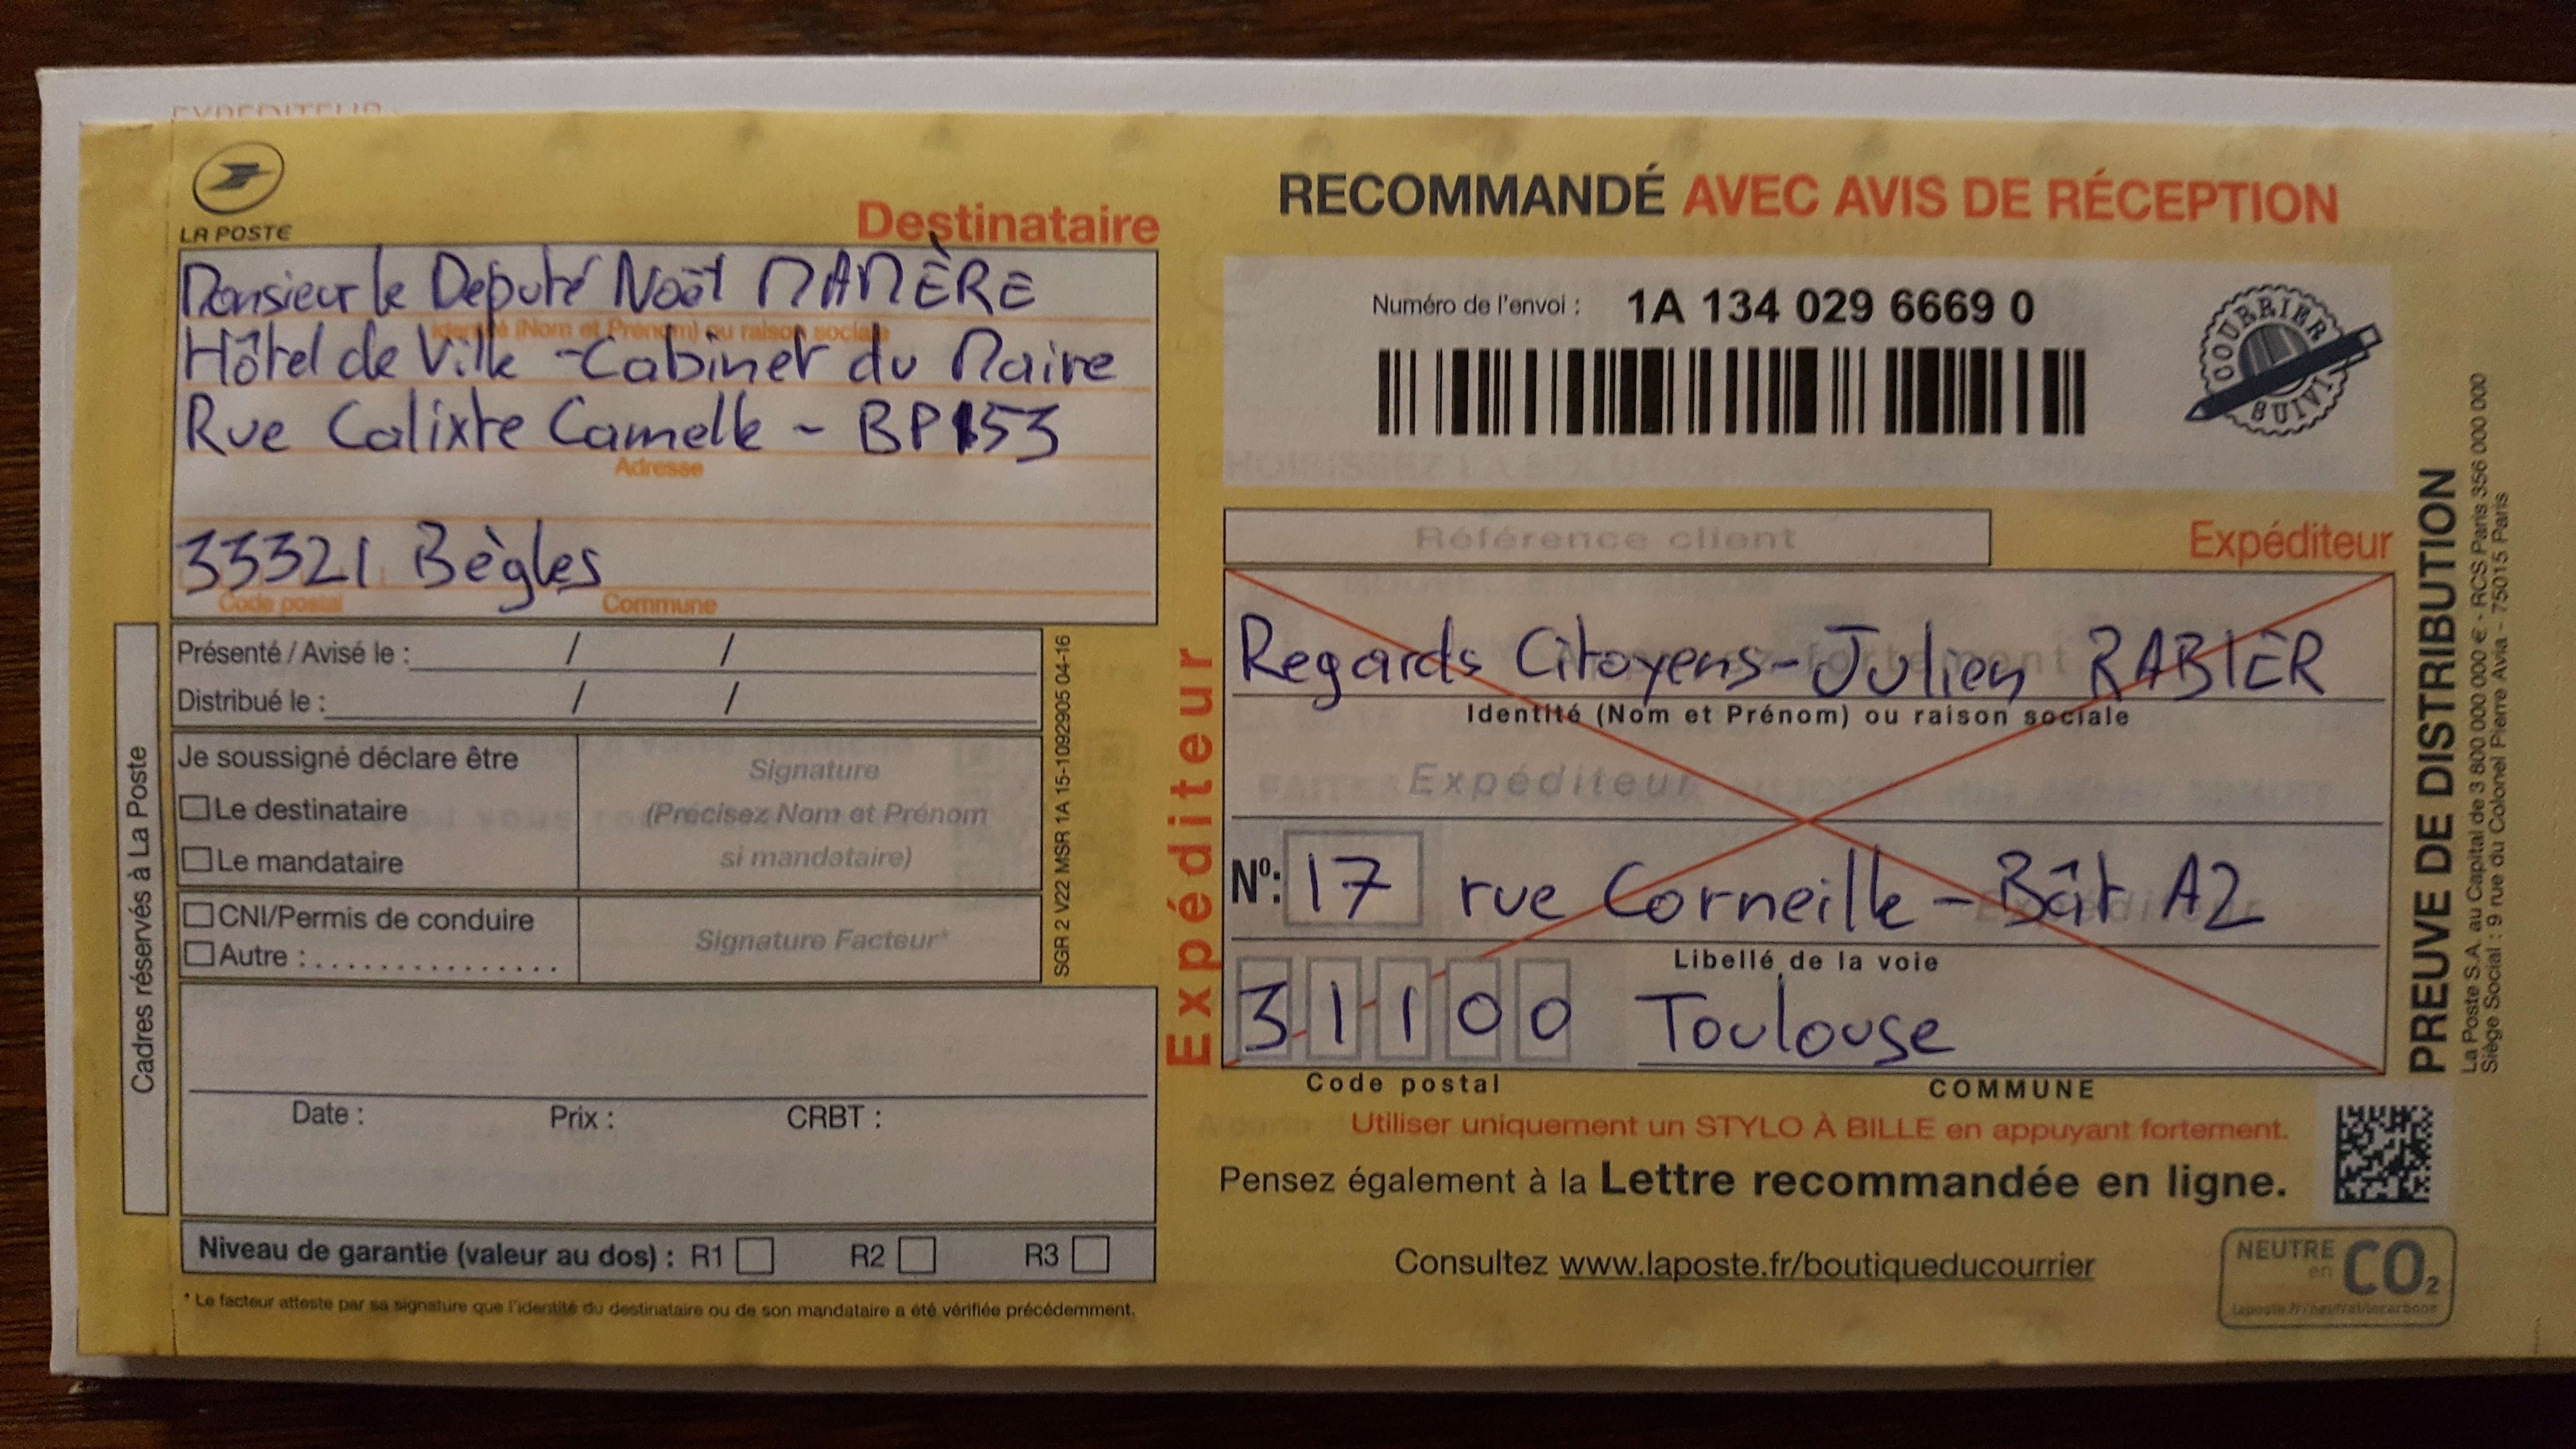 LA POSTE
Destinataire
Monsieur le Député Noël MAMÈRE
Identité (Nom et Prénom) ou raison sociale
Hôtel de Ville - Cabinet du Maire
Rue Calixte Camelle - BP153
Adresse
33321 Bègles
Code postal Commune
Cadres réservés à La Poste
Présenté / Avisé le : / /
Distribué le : / /
Je soussigné déclare être
Le destinataire
Le mandataire
Signature
(Précisez Nom et Prénom
si mandataire)
CNI/Permis de conduire
Autre : ...............
Signature Facteur*
SGR 2 V22 MSR 1A 15-1092905 04-16
Date : Prix : CRBT :
Niveau de garantie (valeur au dos) : R1 R2 R3
* Le facteur atteste par sa signature que l'identité du destinataire ou de son mandataire a été vérifiée précédemment.
RECOMMANDÉ AVEC AVIS DE RÉCEPTION
Numéro de l'envoi : 1A 134 029 6669 0
COURRIER
SUIVI
Référence client
Expéditeur
Expéditeur
Regards Citoyens - Julien RABIER
Identité (Nom et Prénom) ou raison sociale
Expéditeur
N°: 17 rue Corneille - Bât A2
Libellé de la voie
31100 Toulouse
Code postal COMMUNE
Utiliser uniquement un STYLO À BILLE en appuyant fortement.
Pensez également à la Lettre recommandée en ligne.
Consultez www.laposte.fr/boutiqueducourrier
NEUTRE
en
CO2
PREUVE DE DISTRIBUTION
La Poste S.A. au Capital de 3 800 000 000 € - RCS Paris 356 000 000
Siège Social : 9 rue du Colonel Pierre Avia - 75015 Paris